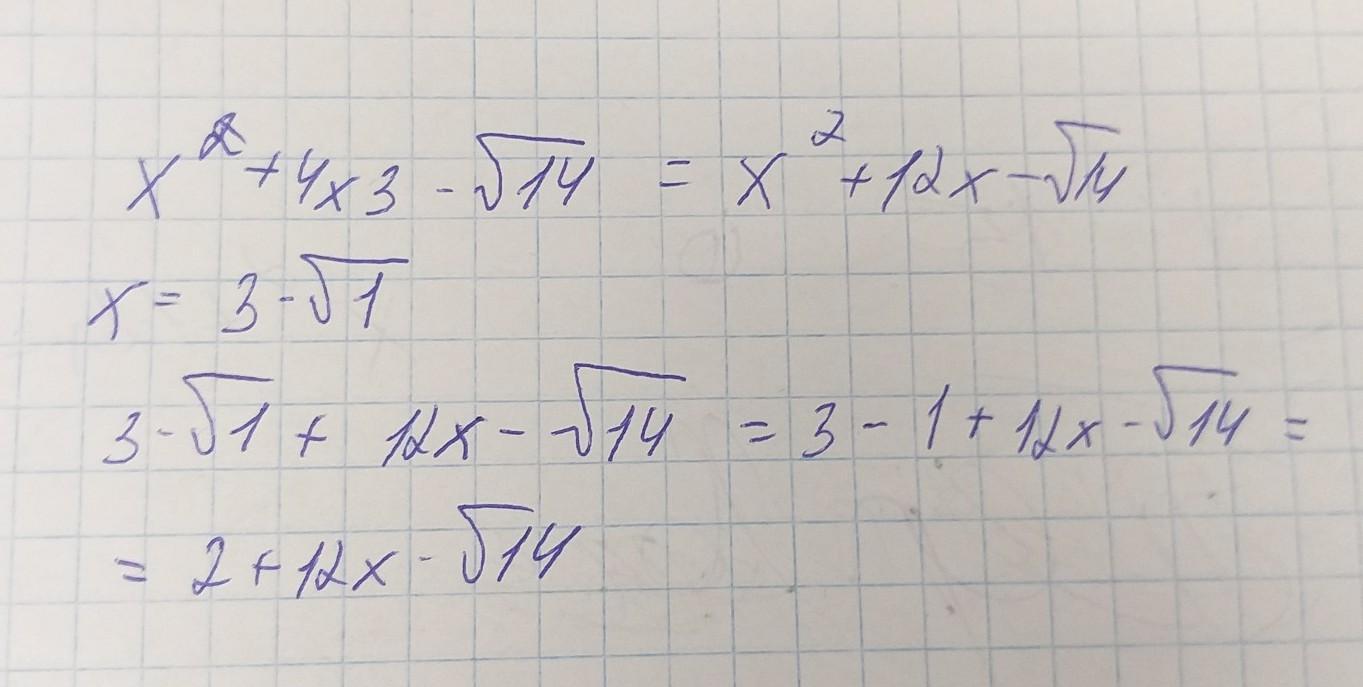 x² + 4x3 - √14 = x² + 12x - √14
x = 3 - √1
3 - √1 + 12x - √14 = 3 - 1 + 12x - √14 =
= 2 + 12x - √14